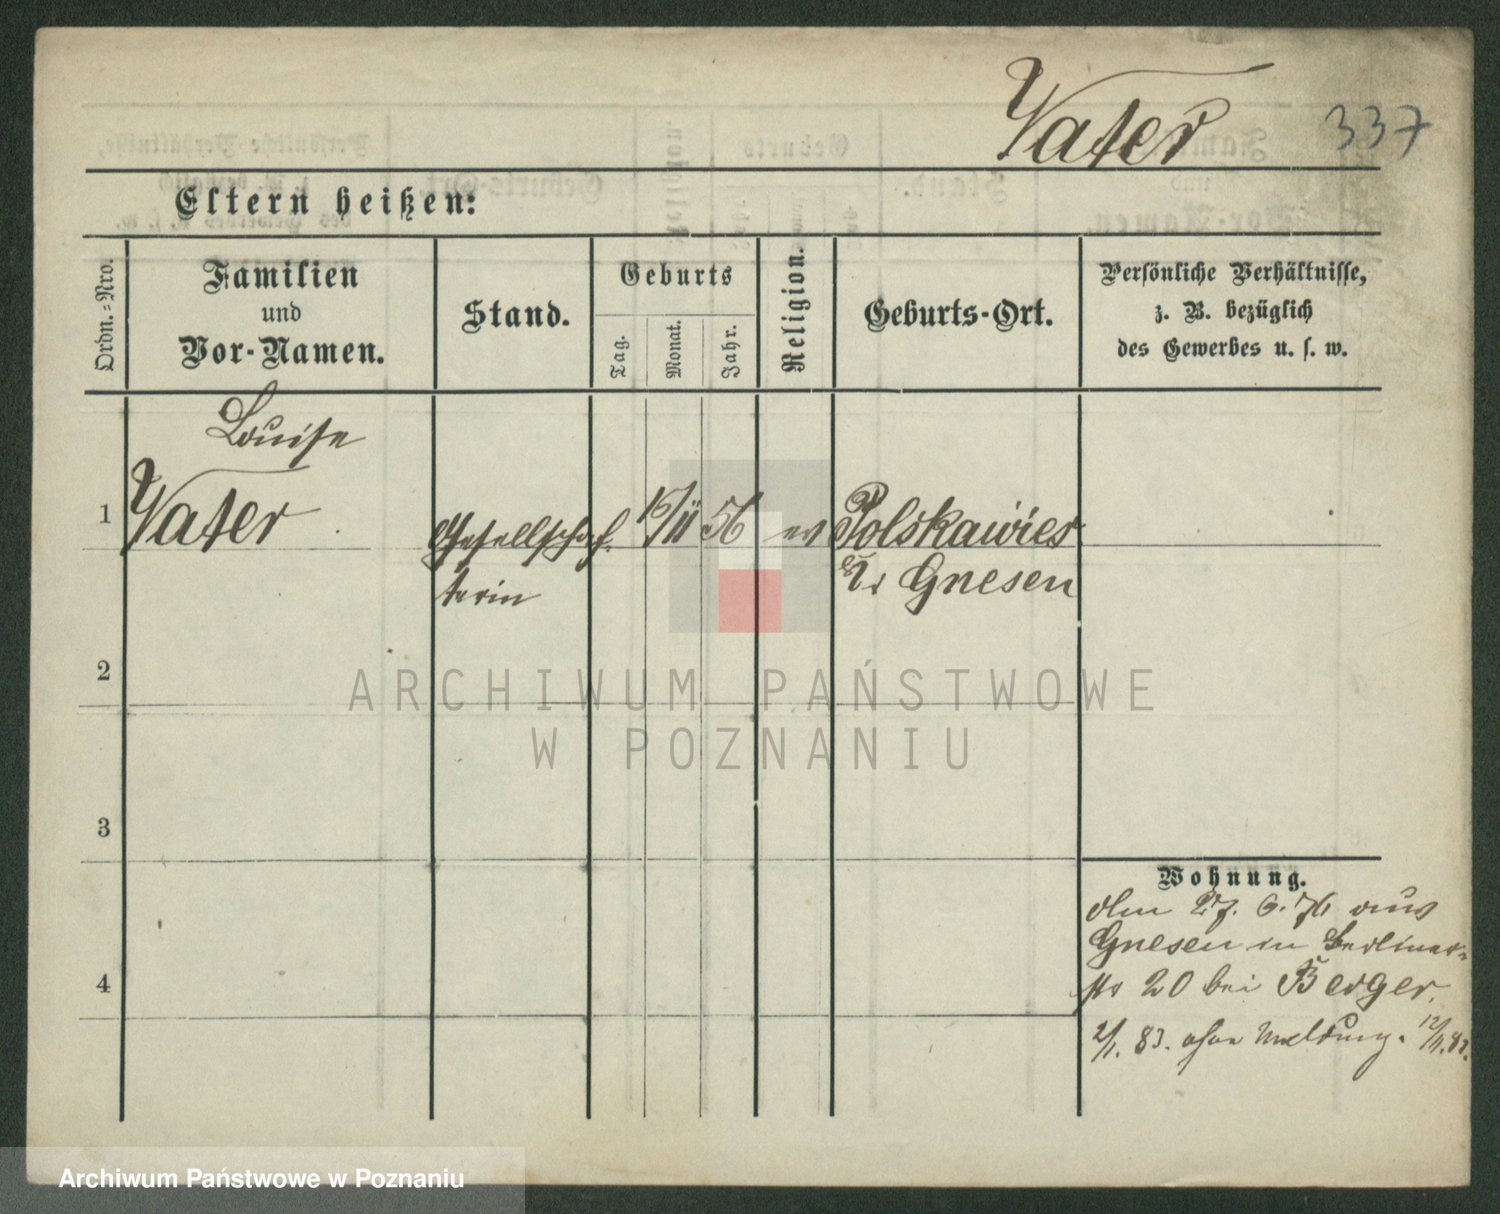 Vater 337
Eltern heißen:
Ordn.-Nro.
Familien
und
Vor-Namen.
Stand.
Geburts
Tag.
Monat.
Jahr.
Religion.
Geburts-Ort.
Persönliche Verhältnisse,
z. B. bezüglich
des Gewerbes u. s. w.
Louise
1 Vater Gesellschaf- /II 56 ev Polskawies
terin Kr Gnesen
2
3
4
Wohnung.
Am 27. 6. 76 aus
Gnesen in Berliner-
str 20 bei Berger.
2/1. 83. ohne Meldung.
ARCHIWUM PAŃSTWOWE
W POZNANIU
Archiwum Państwowe w Poznaniu